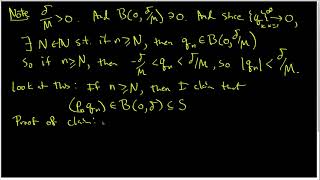 Note δ/M > 0. And B(0, δ/M) ∋ 0. And since {qₙ}ₙ₌₁^∞ → 0,
∃ N∈ℕ s.t. if n ≥ N, then qₙ ∈ B(0, δ/M)
So if n ≥ N, then -δ/M < qₙ < δ/M, so |qₙ| < δ/M.
Look at this: If n ≥ N, then I claim that
(p₀qₙ) ∈ B(0, δ) ⊆ S
Proof of claim: